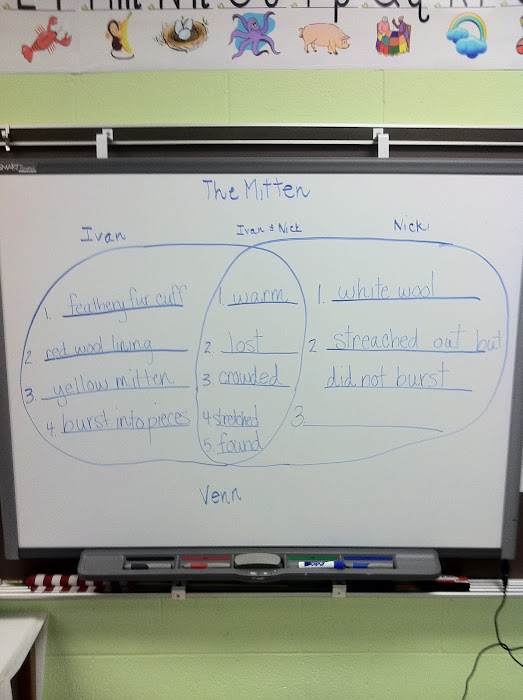 SMART
The Mitten
Ivan
Ivan & Nick
Nicki
1. feathery fur cuff
2 red wool lining
3. yellow mitten
4. burst into pieces
1 warm
2. lost
3. crowded
4 stretched
5. found
1. white wool
2 streached out but
did not burst
3.
Venn
EXPO